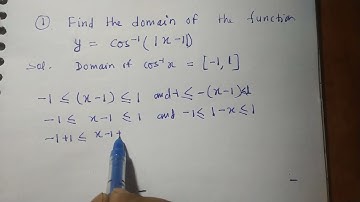 ① Find the domain of the function
y = cos⁻¹(|x-1|)
Sol. Domain of cos⁻¹x = [-1, 1]
-1 ≤ (x-1) ≤ 1 and -1 ≤ -(x-1) ≤ 1
-1 ≤ x-1 ≤ 1 and -1 ≤ 1-x ≤ 1
-1+1 ≤ x-1+